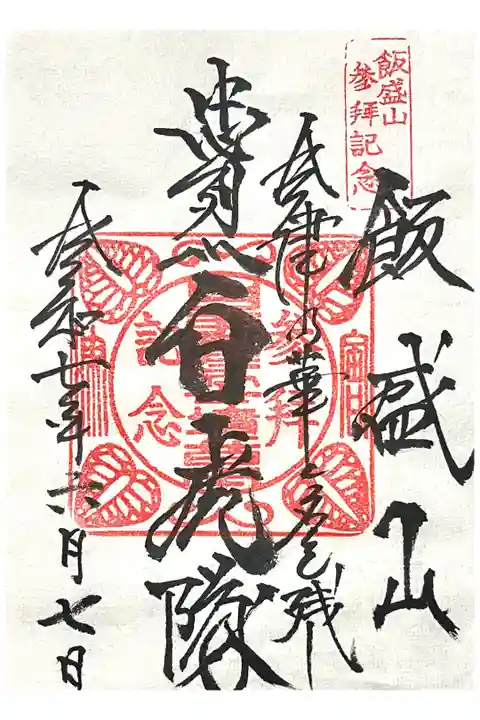 飯盛山
参拝記念
飯盛山
会津の華と名を残
忠烈白虎隊
参拝
記念
令和七年六月七日